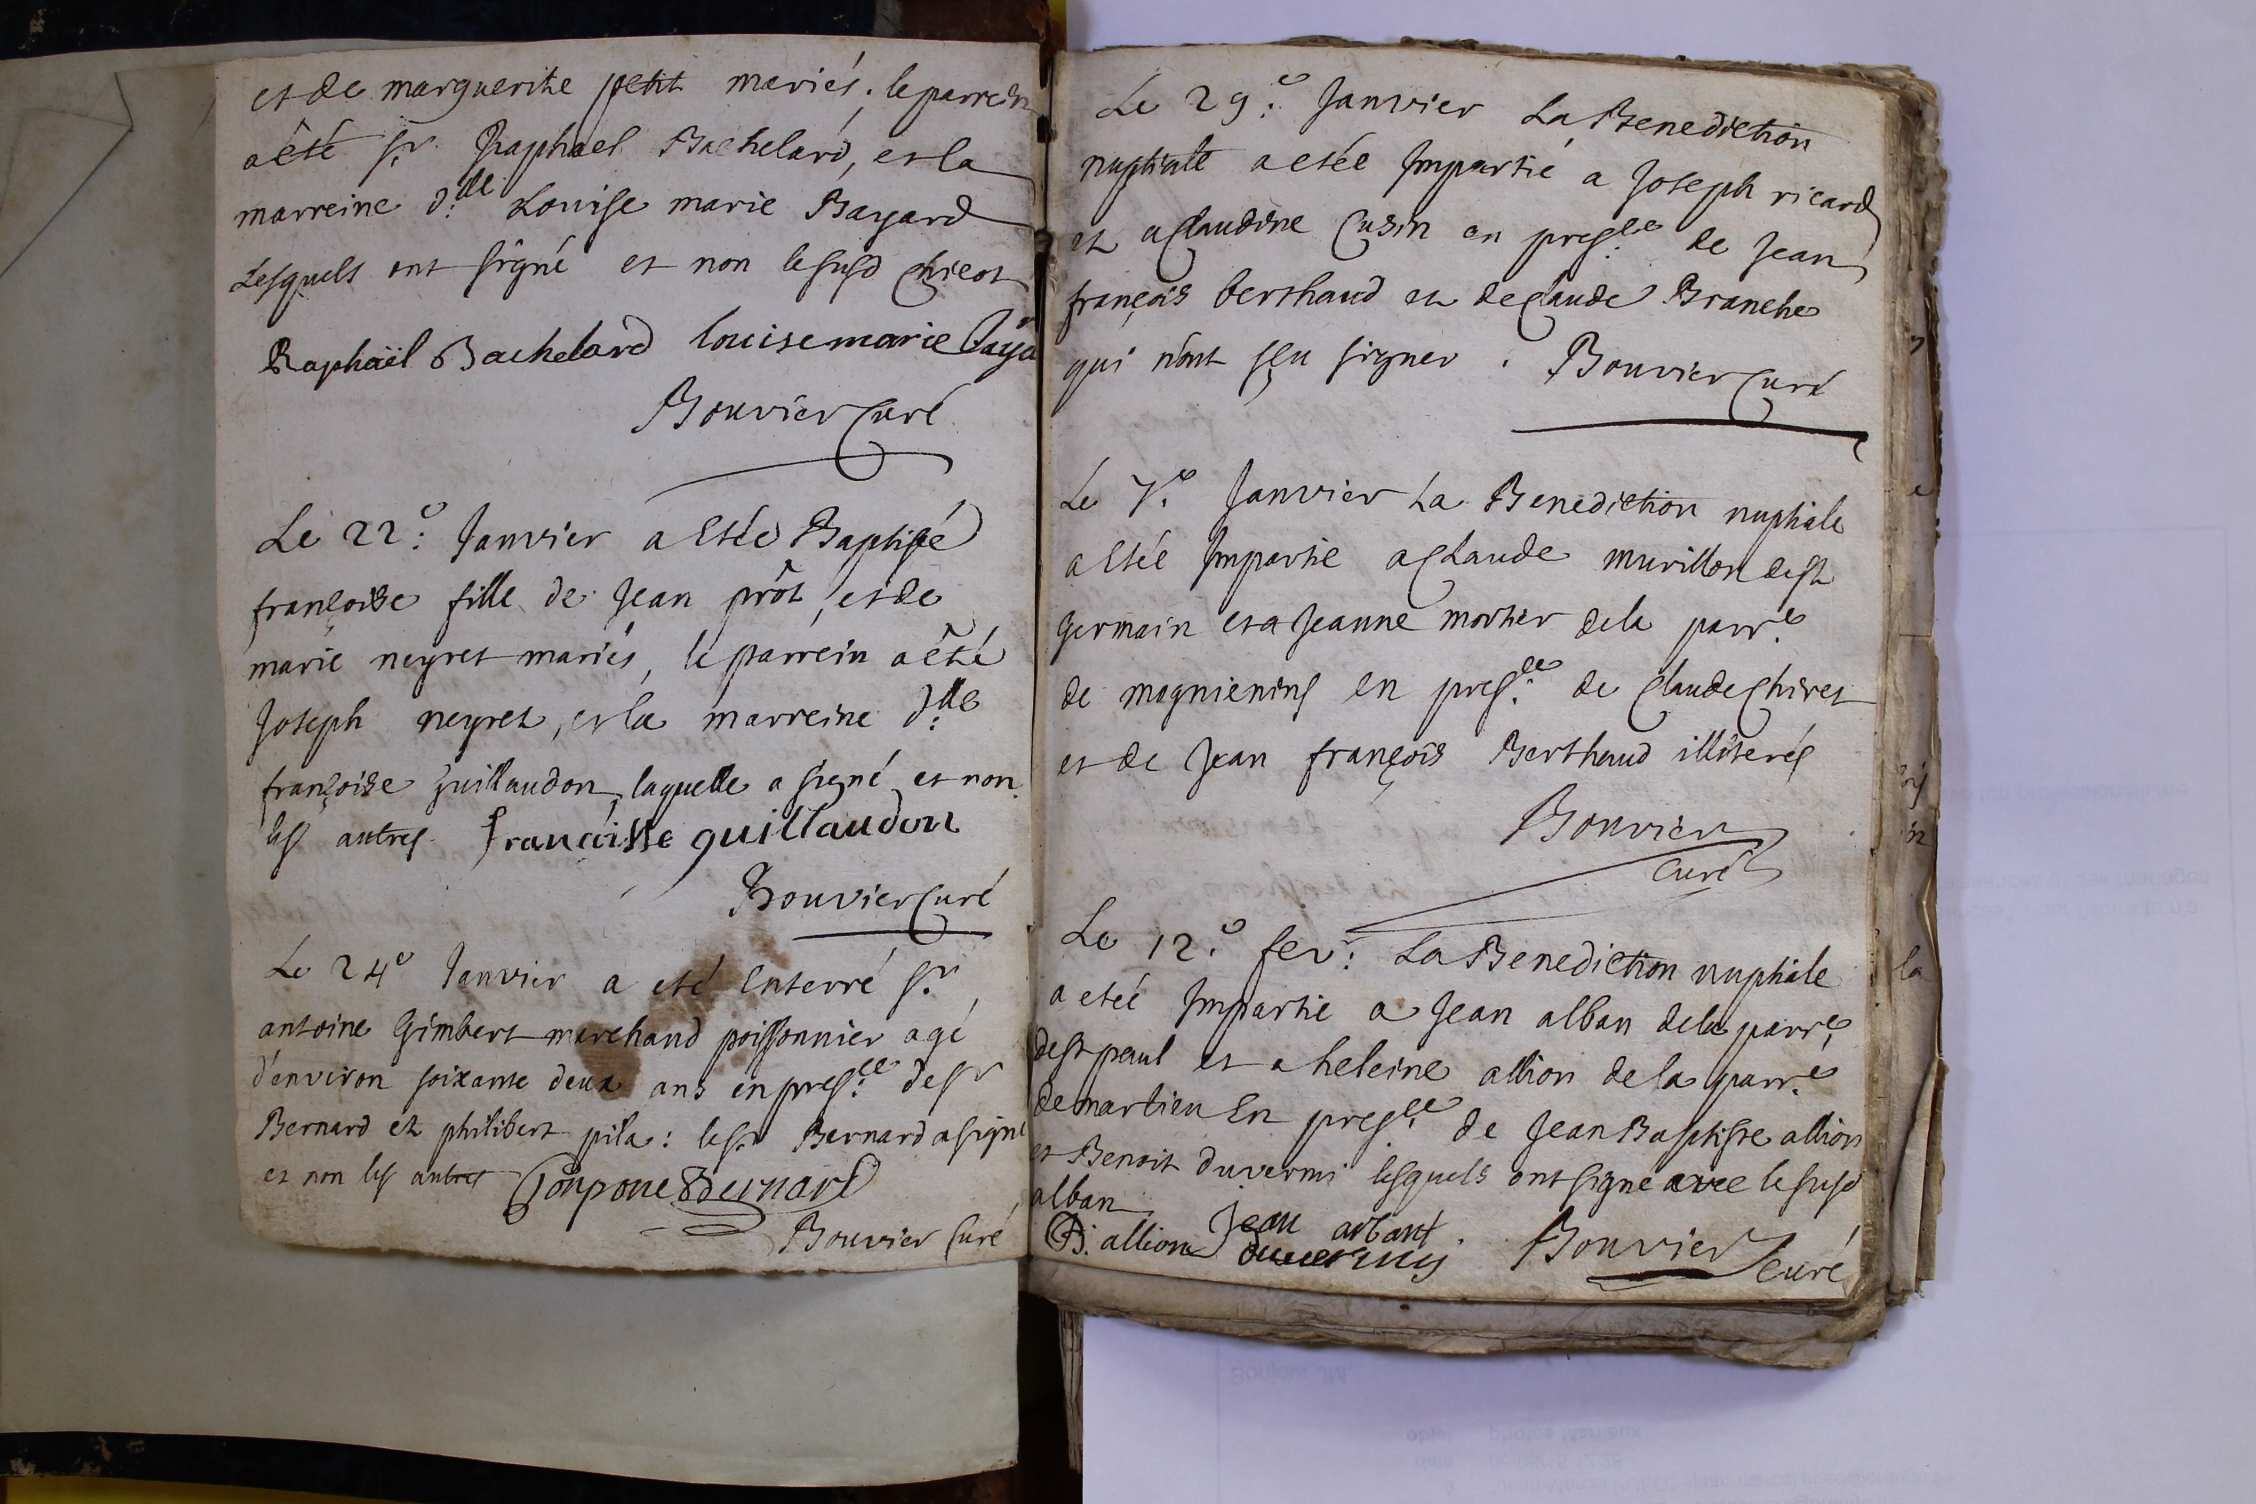 et de marguerite petit mariés. le parrein
a été Sr. Raphael Bachelard, et la
marreine d:lle Louise marie Bayard
Lesquels ont signé et non le susd chicot
Raphaël Bachelard louise marie Baya
Bouvier Curé
Le 22:e Janvier a Etée Baptisée
françoise fille de Jean prôt, et de
marie neyret mariés, le parrein a été
Joseph neyret, et la marreine d:lle
françoise guillaudon, laquelle a signé et non
les autres. francoisse guillaudon
Bouvier Curé
Le 24e Janvier a eté Enterré Sr.
antoine Gimbert marchand poissonnier agé
d'environ soixante deux ans en pres:ce de Sr
Bernard et philibert pila: le Sr Bernard a signé
et non les autres Bernard
Bouvier Curé
Le 29:e Janvier La Benediction
nuptiale a etée Impartie a Joseph ricard
et a Claudine Cusin en pres:ce de Jean
françois berthaud et de Claude Branche
qui n'ont sçu signer. Bouvier Curé
Le 7.e Janvier La Benediction nuptiale
a Etée Impartie a Claude murillon de St
Germain et a Jeanne mortier de la parr.e
de magnienins en pres:ce de Claude Chiret
et de Jean françois Berthaud illiterés
Bouvier
Curé
Le 12.e fevr: La Benediction nuptiale
a etée Impartie a Jean alban de la parr.e
de St paul et a heleine allion de la parr.e
de marlieu En pres.ce de Jean Baptiste allion
et Benoit duvermi lesquels ont signé avec le susd
alban
B. allion Jean arbant
Bouvier Curé